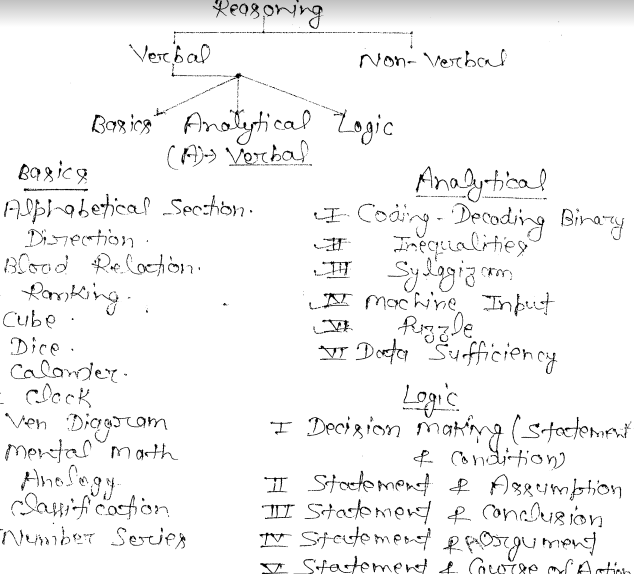 Reasoning
Verbal
Non-Verbal
Basics Analytical Logic
(A)→ Verbal
Basics
Alphabetical Section.
Direction.
Blood Relation.
Ranking.
Cube.
Dice.
Calander.
Clock
Ven Diagram
Mental Math
Anology
Classification
Number Series
Analytical
I Coding-Decoding Binary
II Inequalities
III Sylogizam
IV Machine Input
V Puzzle
VI Data Sufficiency
Logic
I Decision Making (Statement
& Condition)
II Statement & Assumption
III Statement & Conclusion
IV Statement & Orgument
V Statement & Course of Action